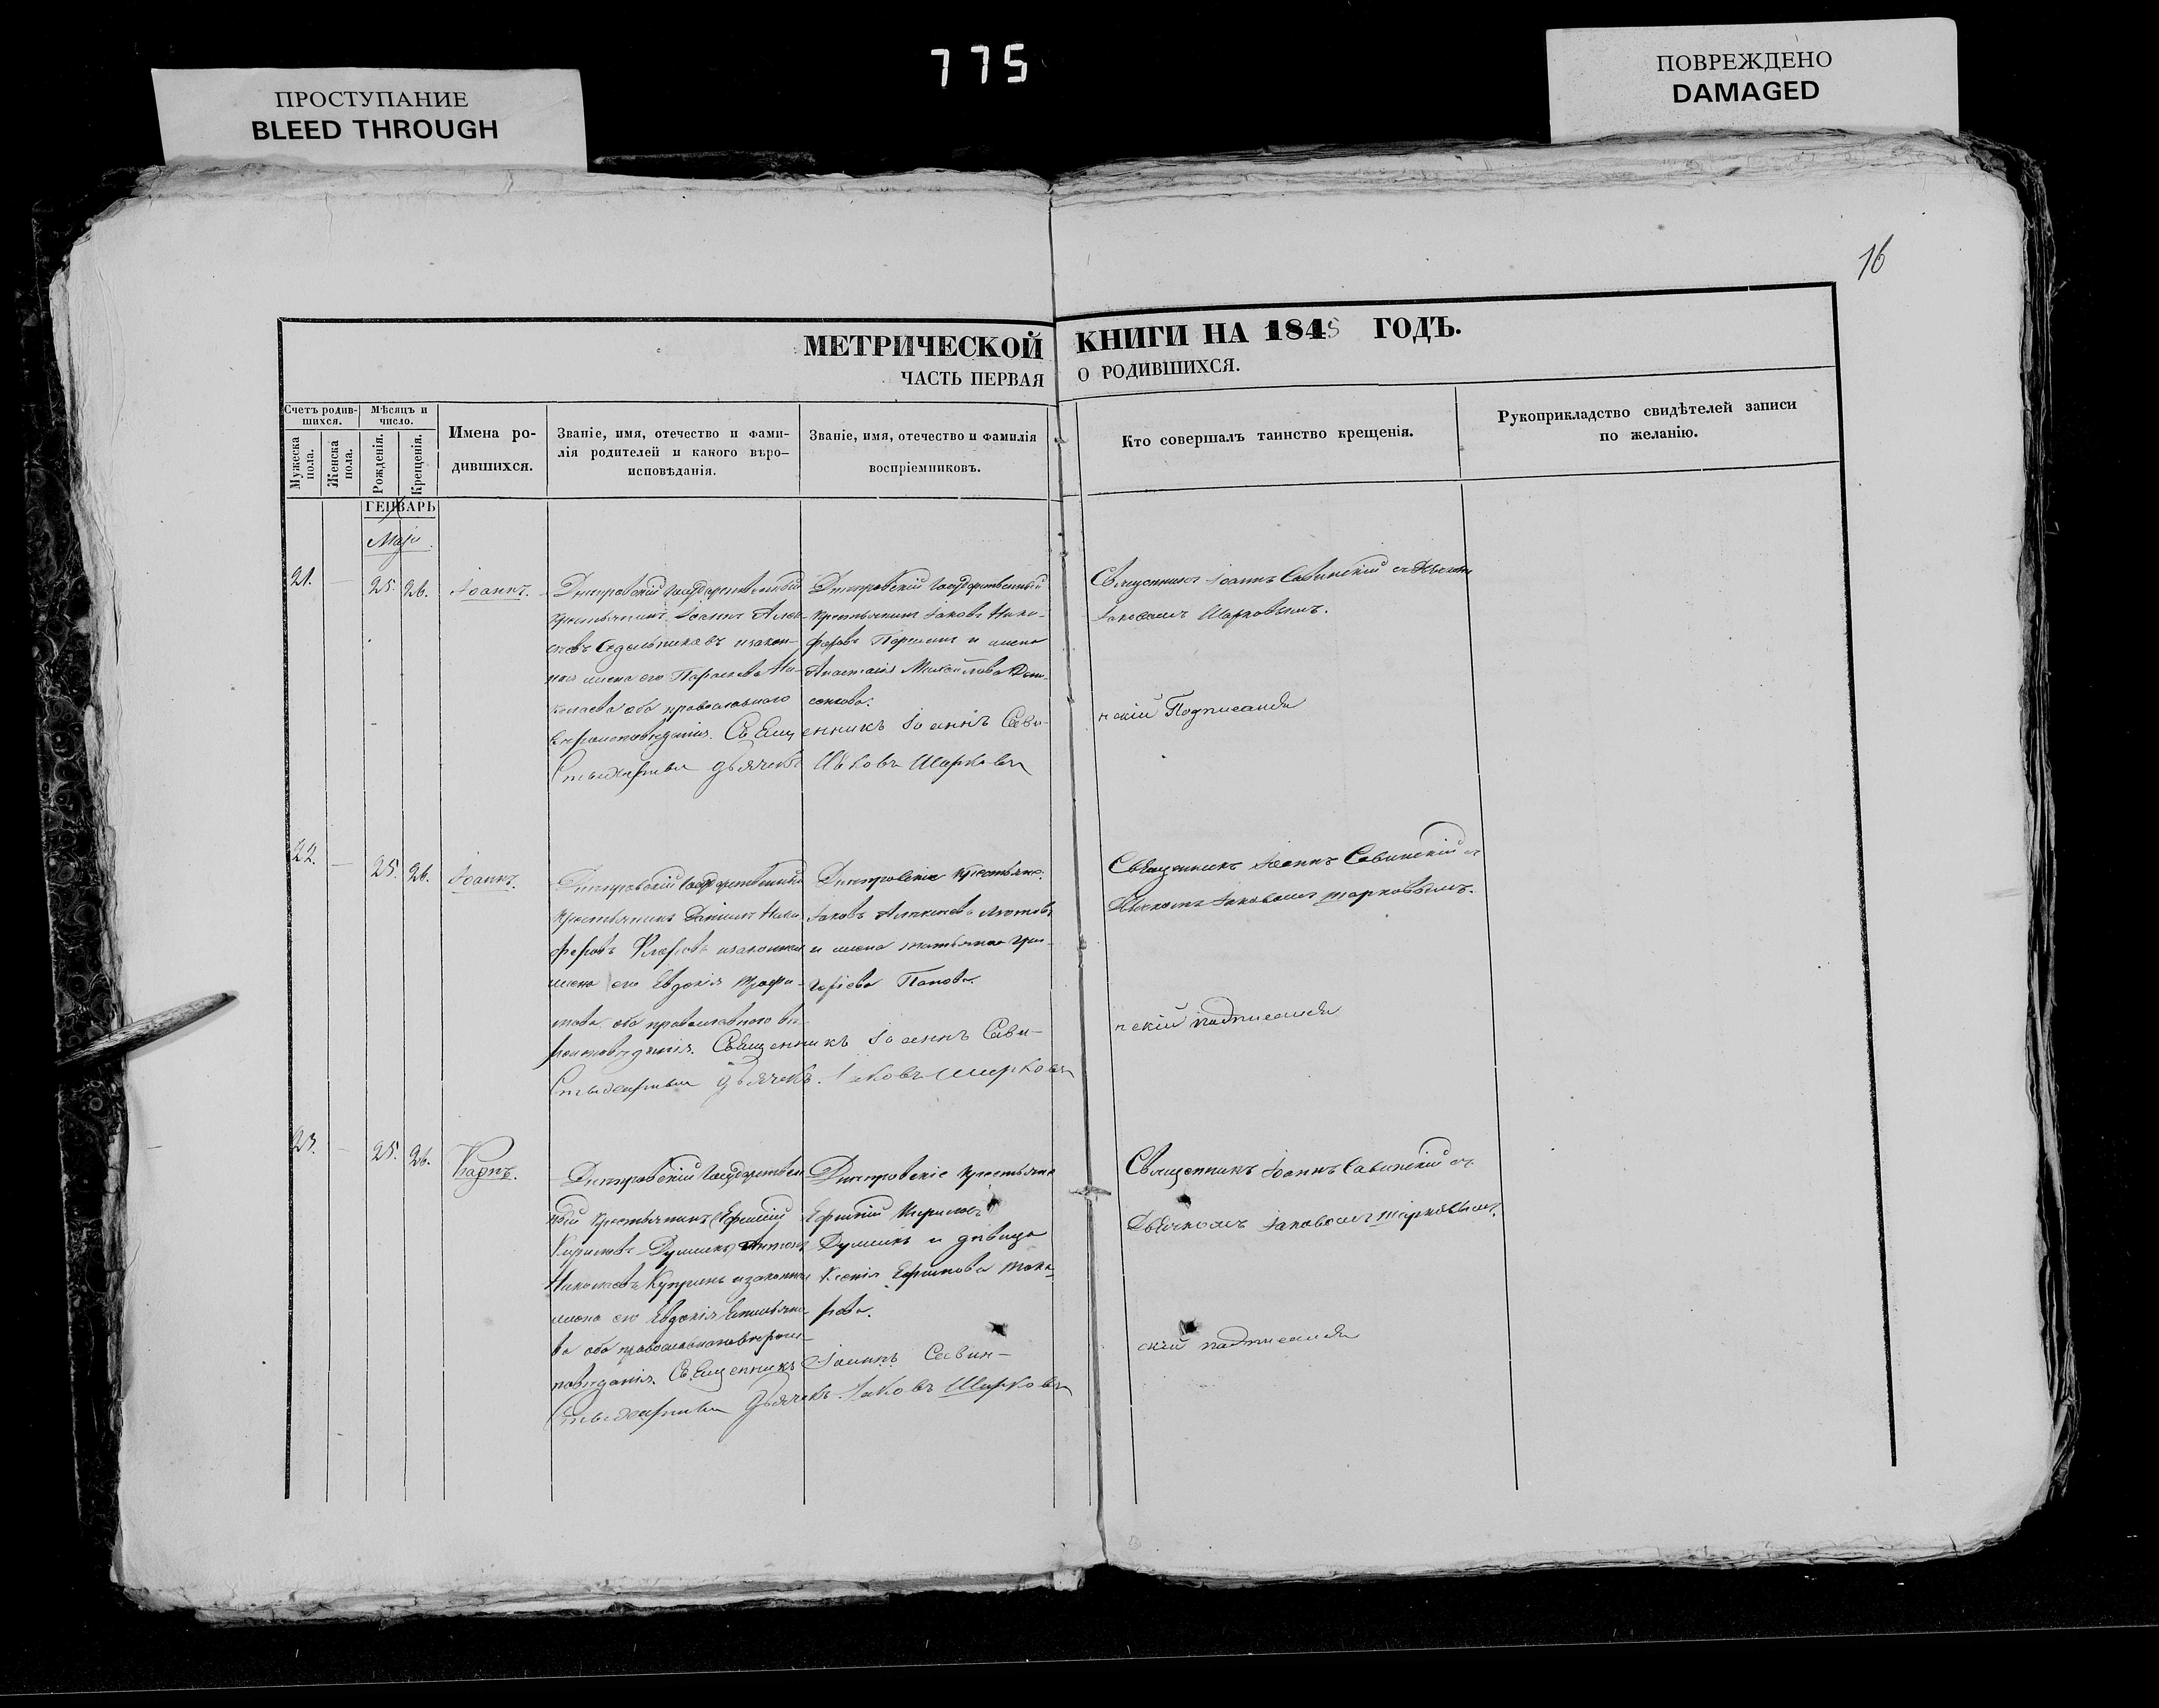 775
ПРОСТУПАНИЕ
BLEED THROUGH
ПОВРЕЖДЕНО
DAMAGED
16
МЕТРИЧЕСКОЙ КНИГИ НА 1845 ГОДЪ.
ЧАСТЬ ПЕРВАЯ О РОДИВШИХСЯ.
Счетъ родив-
шихся.
Мужеска
пола.
Женска
пола.
Мѣсяцъ и
число.
Рожденія.
Крещенія.
Имена ро-
дившихся.
Званіе, имя, отечество и фами-
лія родителей и какого вѣро-
исповѣданія.
Званіе, имя, отечество и фамилія
воспріемниковъ.
Кто совершалъ таинство крещенія.
Рукоприкладство свидѣтелей записи
по желанію.
ГЕНВАРЬ
Маія
21. — 25. 26. Іоаннъ.
Днепровскій Государственный
крестьянинъ Іоаннъ
и закон-
ная жена его Параскева Ни-
колаева оба православного
вероисповеданія. Священникъ Іоаннъ Сави-
дьячекъ Іаковъ Шарковъ
Днепровскій Государственный
крестьянинъ Іаковъ Ники-
форовъ и жена
Анастасія Михайлова
Священникъ Іоаннъ Савинскій съ
Іаковомъ Шарковымъ.
нскій Подписался
22. — 25. 26. Іоаннъ.
Днепровскій Государственный
крестьянинъ Даніилъ Ники-
форовъ и законная
жена его Евдокія Трофи-
мова оба православного ве-
роисповеданія. Священникъ Іоаннъ Сави-
дьячекъ Іаковъ Шарковъ
Днепровскіе крестьяне:
Іаковъ
и жена татьяна гри-
горіева Попова.
Священникъ Іоаннъ Савинскій съ
Дьячкомъ Іаковомъ шарковымъ.
нскій подписался
23. — 25. 26. Карпъ.
Днепровскій Государствен
ный крестьянинъ (Ефимій
Кириловъ Думинъ) Антонъ
Николаевъ Купринъ и законная
жена его Евдокія Емельяно-
ва оба православного верои-
поведанія. Священникъ Іоаннъ Савин-
дьячекъ Іаковъ Шарковъ
Днепровскіе крестьяне
Ефимій Кириловъ
Думинъ и девица
Ксенія Ефимова Мака-
рова.
Священникъ Іоаннъ Савинскій съ
Дьячкомъ Іаковомъ шарковымъ.
скій подписался